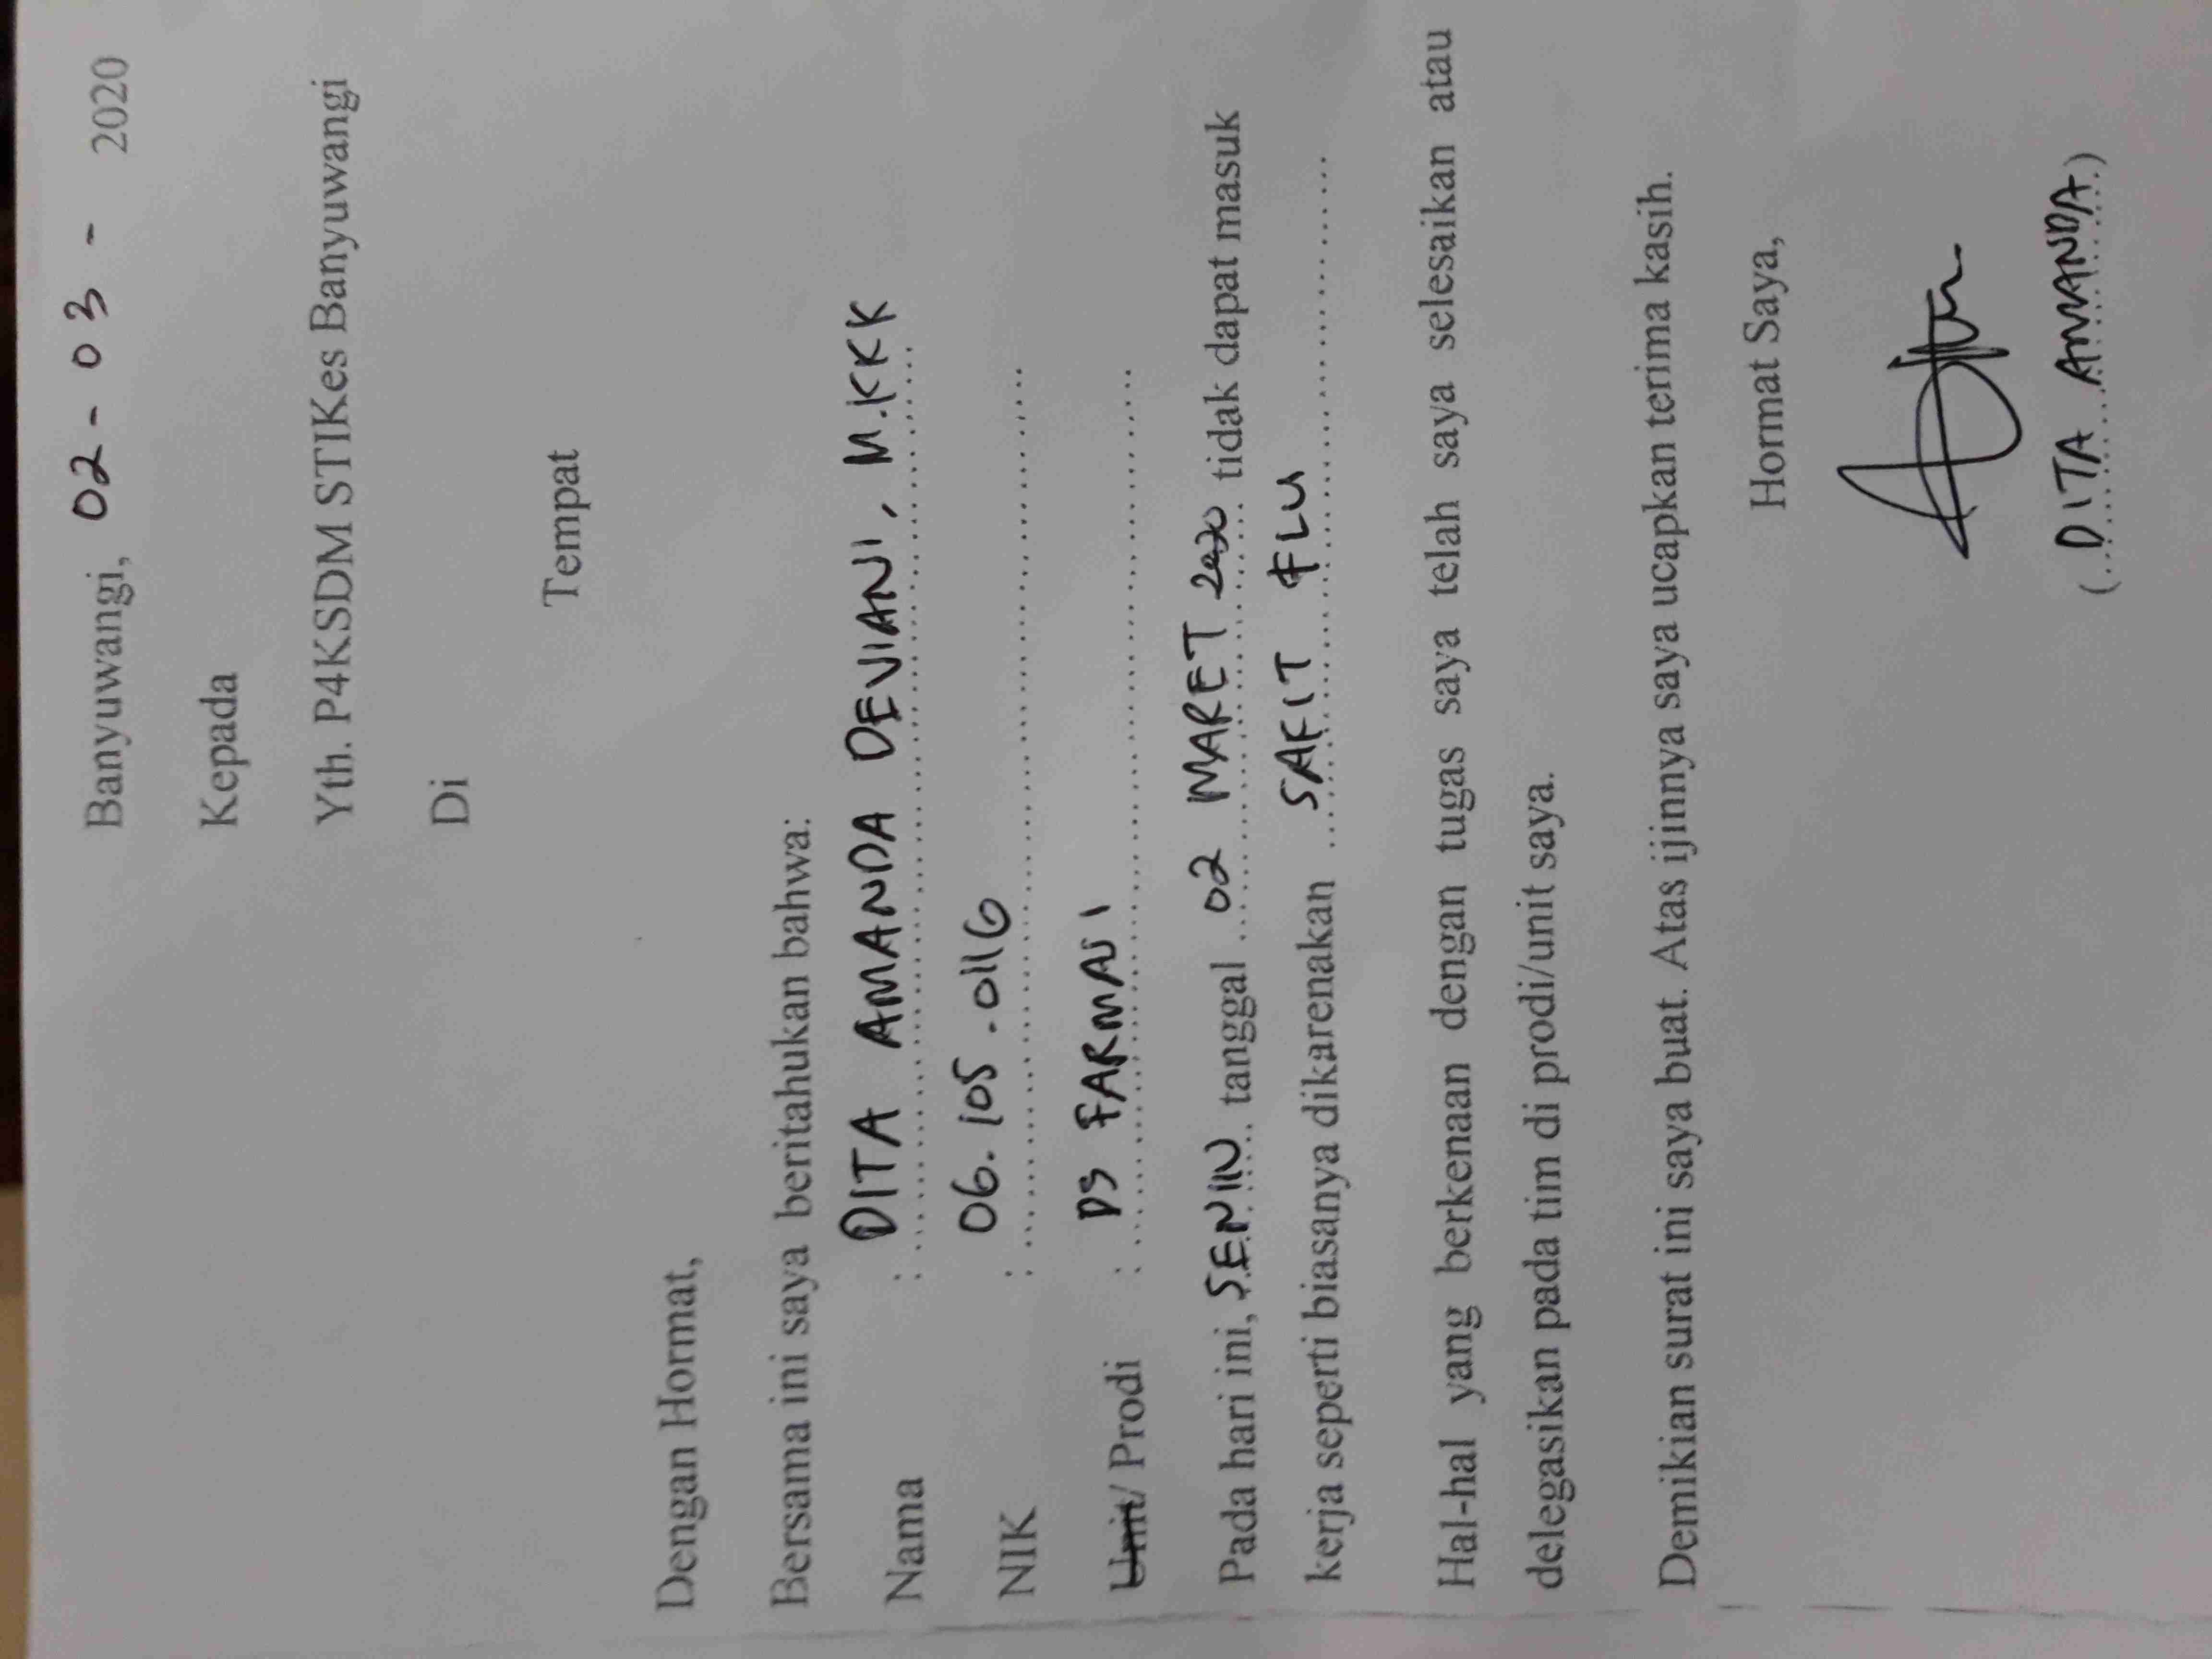 Banyuwangi, 02 - 03 - 2020
Kepada
Yth. P4KSDM STIKes Banyuwangi
Di
Tempat
Dengan Hormat,
Bersama ini saya beritahukan bahwa:
Nama : DITA AMANDA DEVIANI, M.KKK
NIK : 06.105.0116
Unit/ Prodi : DS FARMASI
Pada hari ini, SENIN tanggal 02 MARET 2020 tidak dapat masuk
kerja seperti biasanya dikarenakan SAKIT FLU
Hal-hal yang berkenaan dengan tugas saya telah saya selesaikan atau
delegasikan pada tim di prodi/unit saya.
Demikian surat ini saya buat. Atas ijinnya saya ucapkan terima kasih.
Hormat Saya,
(DITA AMANDA)